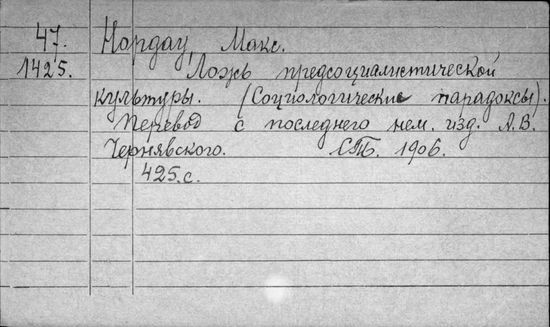 47. Нордау, Макс.
1425. Ложь предсоциалистической
культуры. (Социологические парадоксы).
Перевод с последнего нем. изд. А.В.
Чернявского. СПБ. 1906.
425.с.